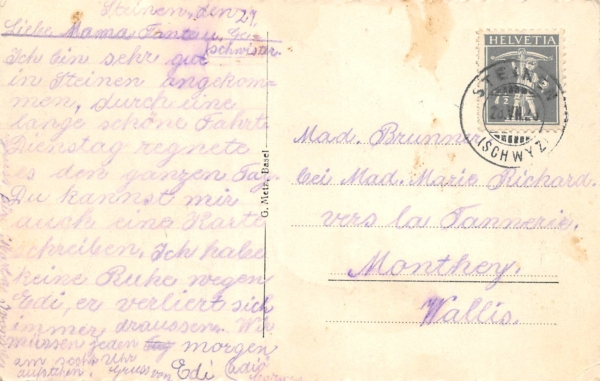 Steinen, den 29.
Liebe Mama, Tante u. Ge-
schwister.
Ich bin sehr gut
in Steinen angekom-
men, durch eine
lange schöne Fahrt.
Dienstag regnete
es den ganzen Tag.
Du kannst mir
auch eine Karte
schreiben. Ich habe
keine Ruhe wegen
Edi, er verliert sich
immer draussen. Wir
müssen jeden Tag morgen
am sechs Uhr
aufstehen. Gruss von Edi
G. Metz, Basel
HELVETIA
STEINEN
(SCHWYZ)
Mad. Brunner
bei Mad. Marie Richard.
vers la Tannerie.
Monthey.
Wallis.